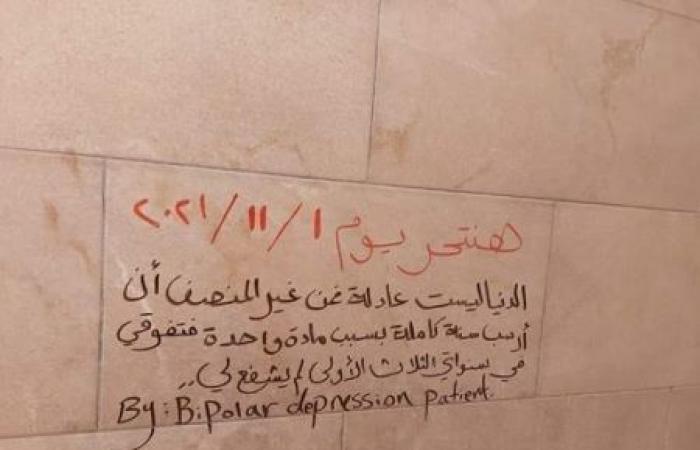 هنتحر يوم ١ / ١١ / ٢٠٢١
الدنيا ليست عادلة فمن غير المنصف أن
أرسب سنة كاملة بسبب مادة واحدة فتفوقي
في سنواتي الثلاث الأولى لم يشفع لي ..
By : Bipolar depression patient.